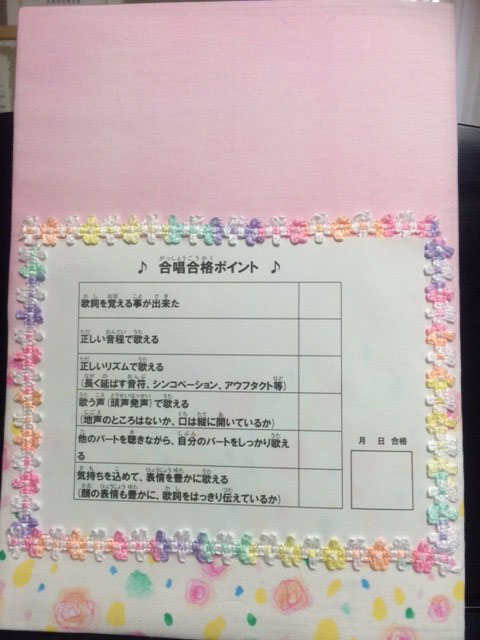 ♪ 合唱合格ポイント ♪
歌詞を覚える事が出来た
正しい音程で歌える
正しいリズムで歌える
(長く延ばす音符、シンコペーション、アウフタクト等)
歌う声(頭声発声)で歌える
(地声のところはないか、口は縦に開いているか)
他のパートを聴きながら、自分のパートをしっかり歌え
る
気持ちを込めて、表情を豊かに歌える
(顔の表情も豊かに、歌詞をはっきり伝えているか)
月 日 合格